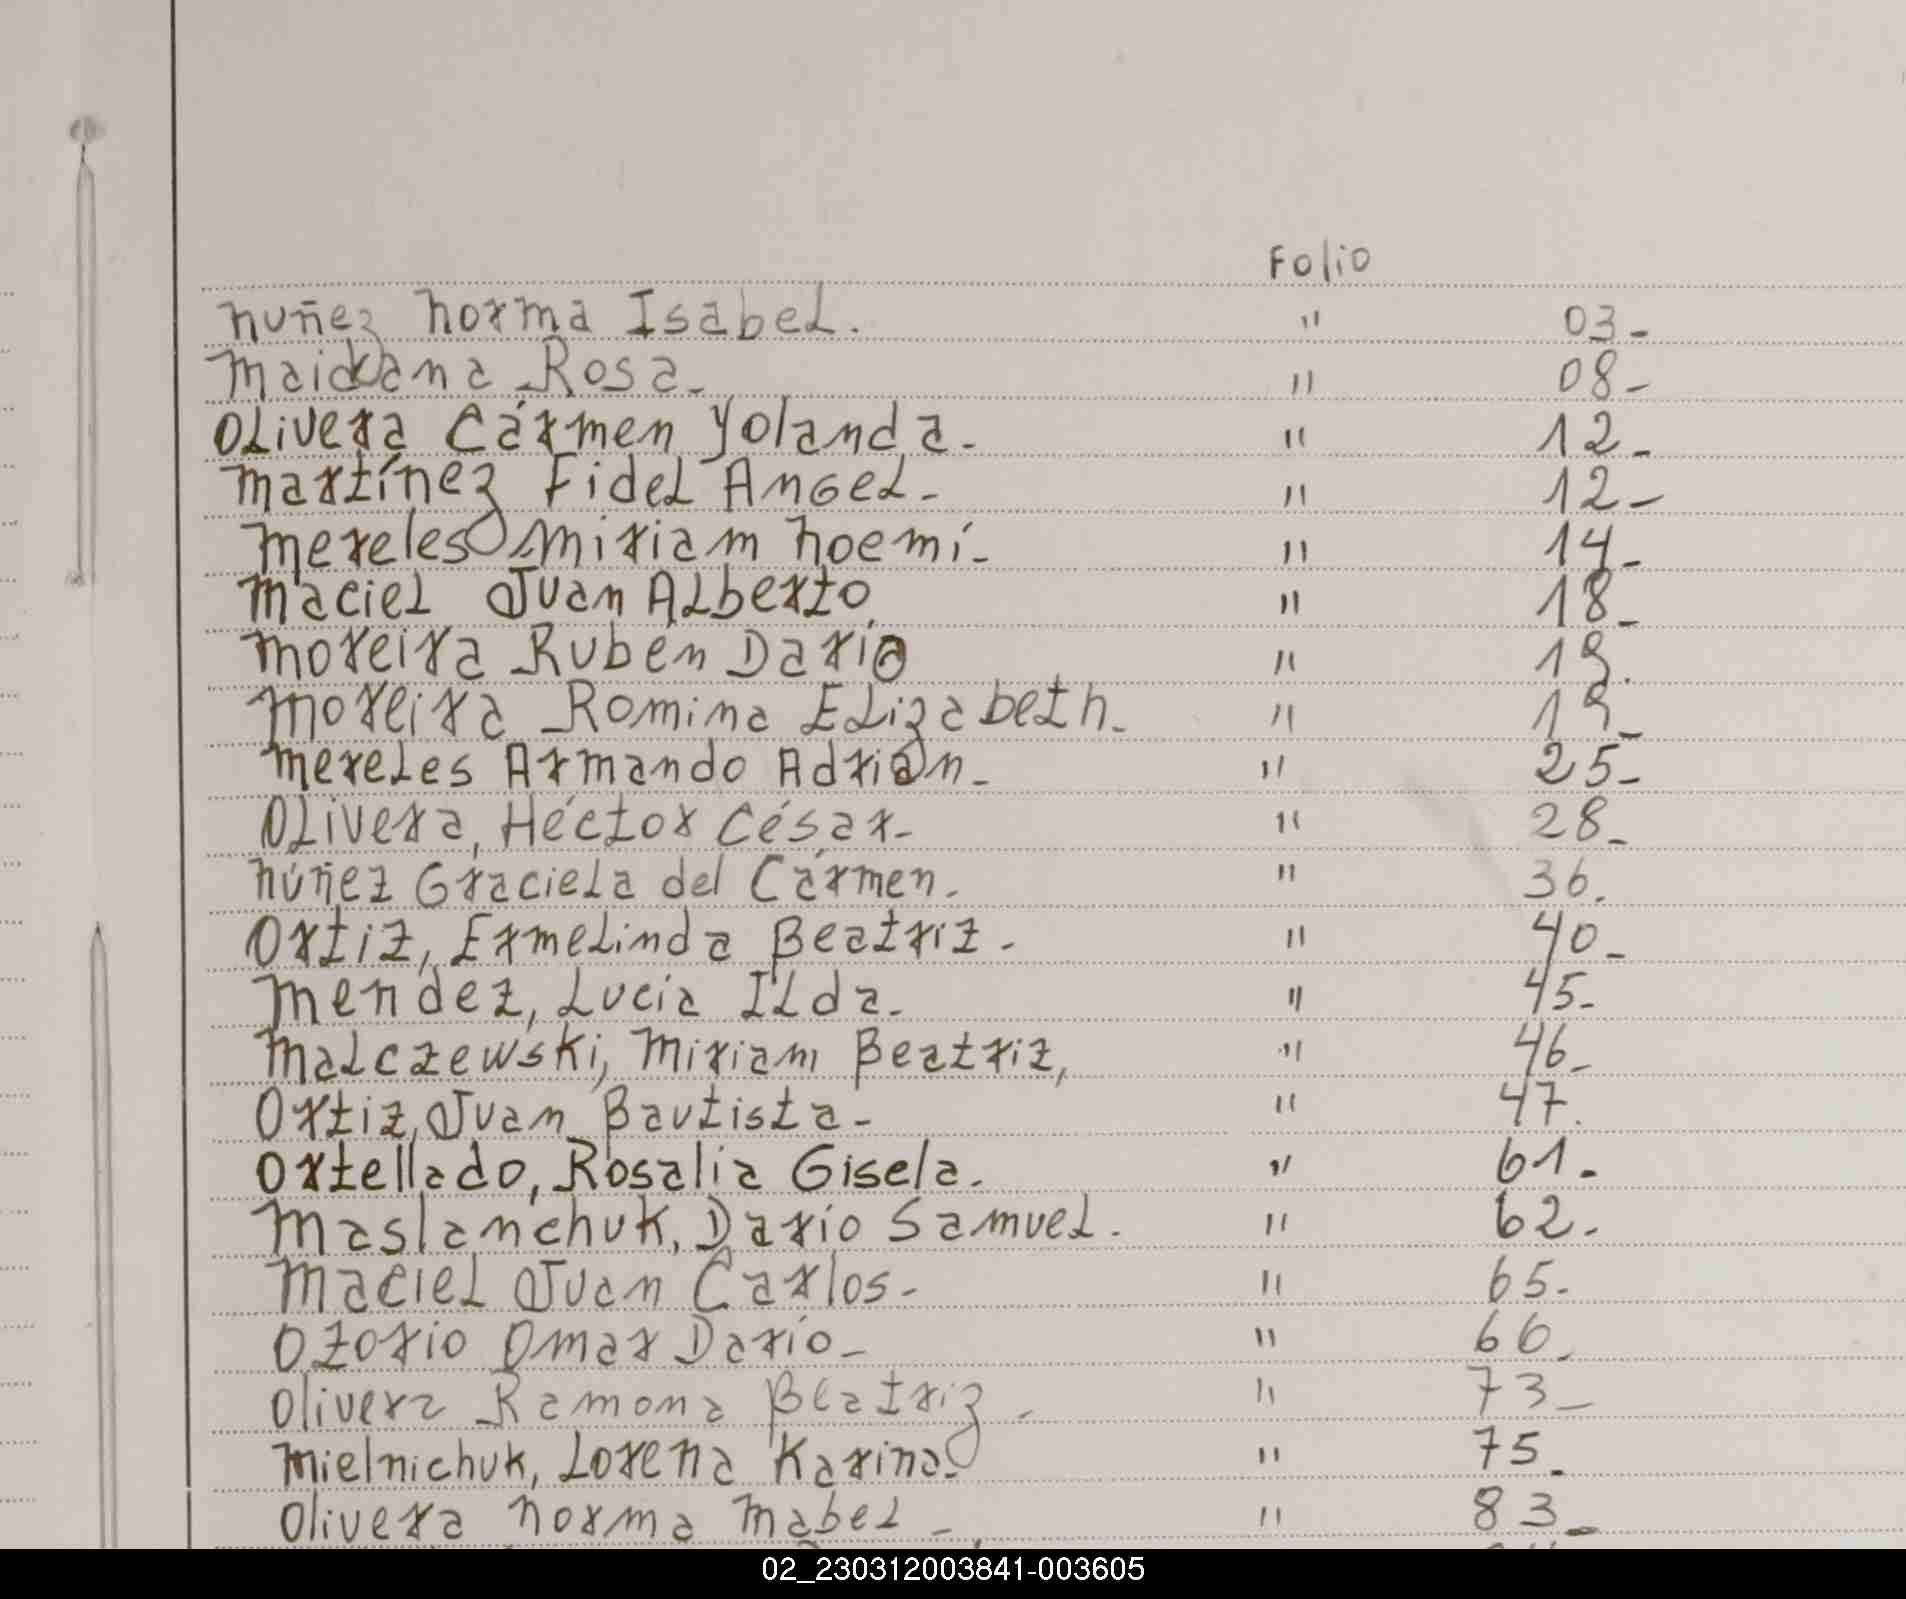 Folio
Nuñez Norma Isabel. " 03-
Maidana Rosa- " 08-
Olivera Cármen Yolanda- " 12-
Martínez Fidel Angel- " 12-
Mereles Miriam Noemí- " 14-
Maciel Juan Alberto. " 18-
Moreira Rubén Dario " 19.
Moreira Romina Elizabeth- " 19-
Mereles Armando Adrian- " 25-
Olivera, Héctor César- " 28-
Núñez Graciela del Cármen- " 36.
Ortiz, Ermelinda Beatriz- " 40-
Mendez, Lucia Ilda- " 45-
Malczewski, Miriam Beatriz, " 46-
Ortiz, Juan Bautista- " 47.
Ortellado, Rosalia Gisela. " 61-
Maslanchuk, Dario Samuel. " 62-
Maciel Juan Carlos- " 65-
Ozorio Omar Dario- " 66-
Olivera Ramona Beatriz- " 73-
Mielnichuk, Lorena Karina- " 75-
Olivera Norma Mabel- " 83-
02_230312003841-003605